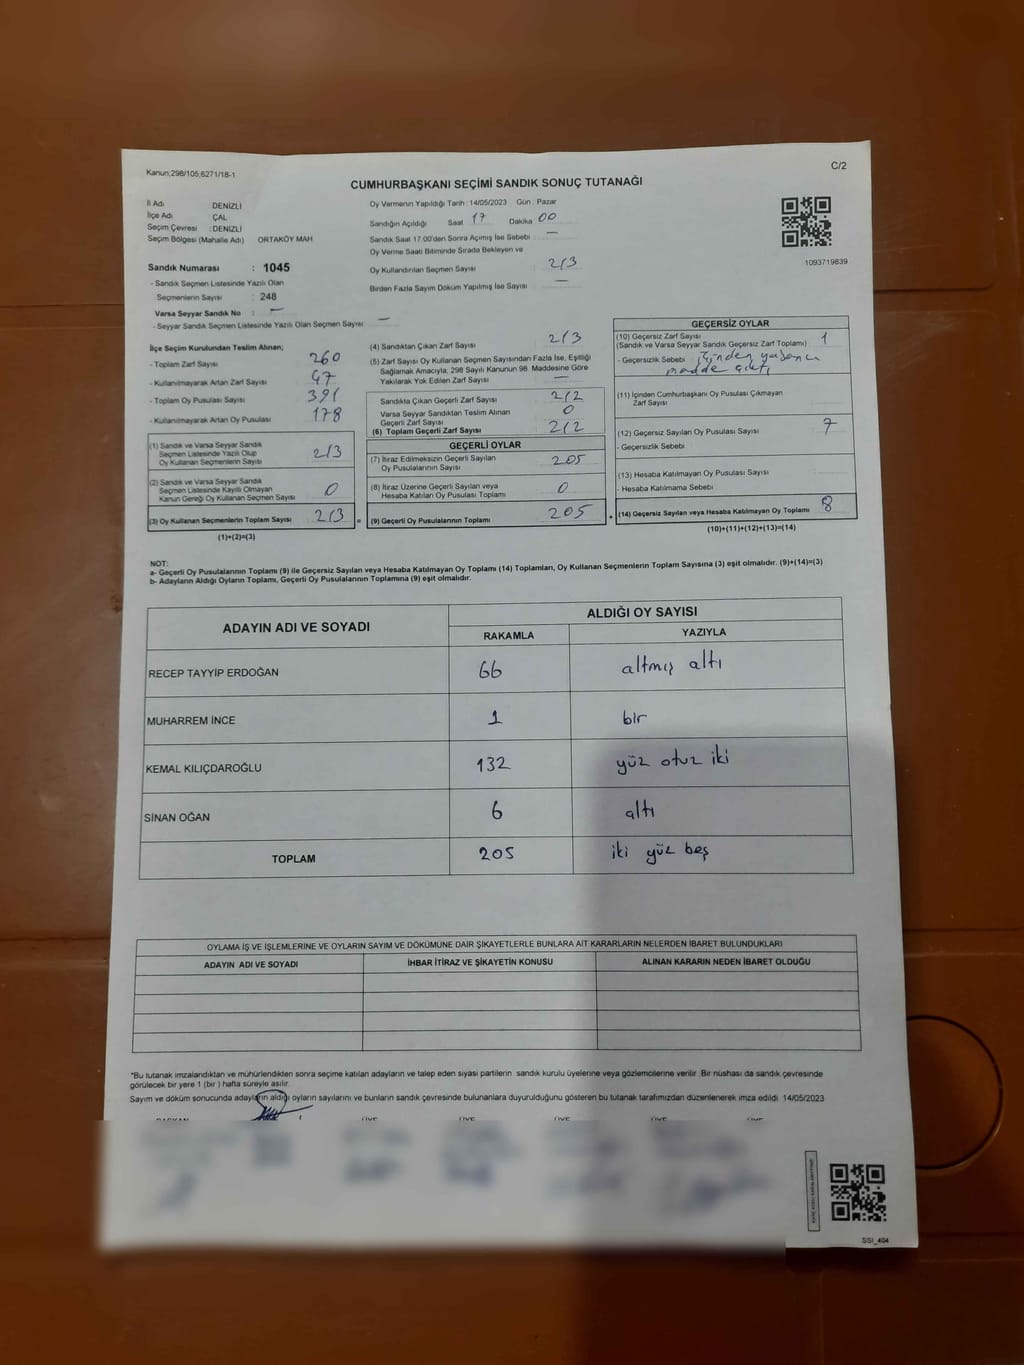 Kanun;298/105;6271/18-1
C/2
CUMHURBAŞKANI SEÇİMİ SANDIK SONUÇ TUTANAĞI
İl Adı DENİZLİ
İlçe Adı ÇAL
Seçim Çevresi :DENİZLİ
Seçim Bölgesi (Mahalle Adı) ORTAKÖY MAH
Sandık Numarası : 1045
- Sandık Seçmen Listesinde Yazılı Olan
Seçmenlerin Sayısı : 248
Varsa Seyyar Sandık No : —
- Seyyar Sandık Seçmen Listesinde Yazılı Olan Seçmen Sayısı —
Oy Vermenin Yapıldığı Tarih :14/05/2023 Gün : Pazar
Sandığın Açıldığı Saat 17 Dakika 00
Sandık Saat 17.00'den Sonra Açılmış İse Sebebi : —
Oy Verme Saati Bitiminde Sırada Bekleyen ve
Oy Kullandırılan Seçmen Sayısı 213
Birden Fazla Sayım Döküm Yapılmış İse Sayısı —
1093719839
İlçe Seçim Kurulundan Teslim Alınan;
- Toplam Zarf Sayısı 260
- Kullanılmayarak Artan Zarf Sayısı 47
- Toplam Oy Pusulası Sayısı 391
- Kullanılmayarak Artan Oy Pusulası 178
(1) Sandık ve Varsa Seyyar Sandık
Seçmen Listesinde Yazılı Olup
Oy Kullanan Seçmenlerin Sayısı 213
(2) Sandık ve Varsa Seyyar Sandık
Seçmen Listesinde Kayıtlı Olmayan
Kanun Gereği Oy Kullanan Seçmen Sayısı 0
(3) Oy Kullanan Seçmenlerin Toplam Sayısı 213
(1)+(2)=(3)
(4) Sandıktan Çıkan Zarf Sayısı 213
(5) Zarf Sayısı Oy Kullanan Seçmen Sayısından Fazla İse, Eşitliği
Sağlamak Amacıyla; 298 Sayılı Kanunun 98. Maddesine Göre
Yakılarak Yok Edilen Zarf Sayısı —
Sandıkta Çıkan Geçerli Zarf Sayısı 212
Varsa Seyyar Sandıktan Teslim Alınan
Geçerli Zarf Sayısı 0
(6) Toplam Geçerli Zarf Sayısı 212
GEÇERLİ OYLAR
(7) İtiraz Edilmeksizin Geçerli Sayılan
Oy Pusulalarının Sayısı 205
(8) İtiraz Üzerine Geçerli Sayılan veya
Hesaba Katılan Oy Pusulası Toplamı 0
= (9) Geçerli Oy Pusulalarının Toplamı 205
GEÇERSİZ OYLAR
(10) Geçersiz Zarf Sayısı 1
(Sandık ve Varsa Seyyar Sandık Geçersiz Zarf Toplamı)
- Geçersizlik Sebebi içinden yabancı
madde çıktı
(11) İçinden Cumhurbaşkanı Oy Pusulası Çıkmayan
Zarf Sayısı
(12) Geçersiz Sayılan Oy Pusulası Sayısı 7
- Geçersizlik Sebebi
(13) Hesaba Katılmayan Oy Pusulası Sayısı
- Hesaba Katılmama Sebebi
+ (14) Geçersiz Sayılan veya Hesaba Katılmayan Oy Toplamı 8
(10)+(11)+(12)+(13)=(14)
NOT:
a- Geçerli Oy Pusulalarının Toplamı (9) ile Geçersiz Sayılan veya Hesaba Katılmayan Oy Toplamı (14) Toplamları, Oy Kullanan Seçmenlerin Toplam Sayısına (3) eşit olmalıdır. (9)+(14)=(3)
b- Adayların Aldığı Oyların Toplamı, Geçerli Oy Pusulalarının Toplamına (9) eşit olmalıdır.
ADAYIN ADI VE SOYADI ALDIĞI OY SAYISI
RAKAMLA YAZIYLA
RECEP TAYYİP ERDOĞAN 66 altmış altı
MUHARREM İNCE 1 bir
KEMAL KILIÇDAROĞLU 132 yüz otuz iki
SİNAN OĞAN 6 altı
TOPLAM 205 iki yüz beş
OYLAMA İŞ VE İŞLEMLERİNE VE OYLARIN SAYIM VE DÖKÜMÜNE DAİR ŞİKAYETLERLE BUNLARA AİT KARARLARIN NELERDEN İBARET BULUNDUKLARI
ADAYIN ADI VE SOYADI İHBAR İTİRAZ VE ŞİKAYETİN KONUSU ALINAN KARARIN NEDEN İBARET OLDUĞU
*Bu tutanak imzalandıktan ve mühürlendikten sonra seçime katılan adayların ve talep eden siyasi partilerin sandık kurulu üyelerine veya gözlemcilerine verilir. Bir nüshası da sandık çevresinde
görülecek bir yere 1 (bir ) hafta süreyle asılır.
Sayım ve döküm sonucunda adayların aldığı oyların sayılarını ve bunların sandık çevresinde bulunanlara duyurulduğunu gösteren bu tutanak tarafımızdan düzenlenerek imza edildi. 14/05/2023
BAŞKAN ÜYE ÜYE ÜYE ÜYE ÜYE
SSI_404